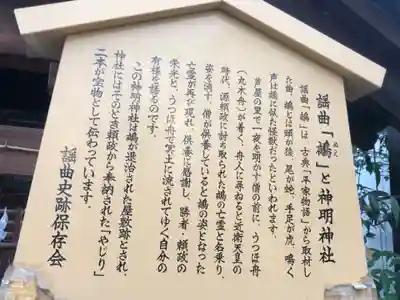 謡曲「鵺」と神明神社
ぬえ
謡曲「鵺」は、古典「平家物語」から取材し
た曲、鵺とは頭が猿、尾が蛇、手足が虎、鳴く
声は鵺に似た怪獣だったといわれます。
芦屋の里で一夜を明かす僧の前に、うつほ舟
(丸木舟)が着く、舟人に尋ねると近衛天皇の
時代、源頼政に討ち取られた鵺の亡霊と名乗り、
姿を消す、僧が供養していると鵺の姿となった
亡霊が再び現れ、供養に感謝し、勝者・頼政の
栄光と、うつほ舟で冥土に流されてゆく自分の
有様を語るのです。
この神明神社は鵺が退治された屋敷跡とされ、
神社にはそのとき頼政から奉納された「やじり」
二本が宝物として伝わっています。
謡曲史跡保存会